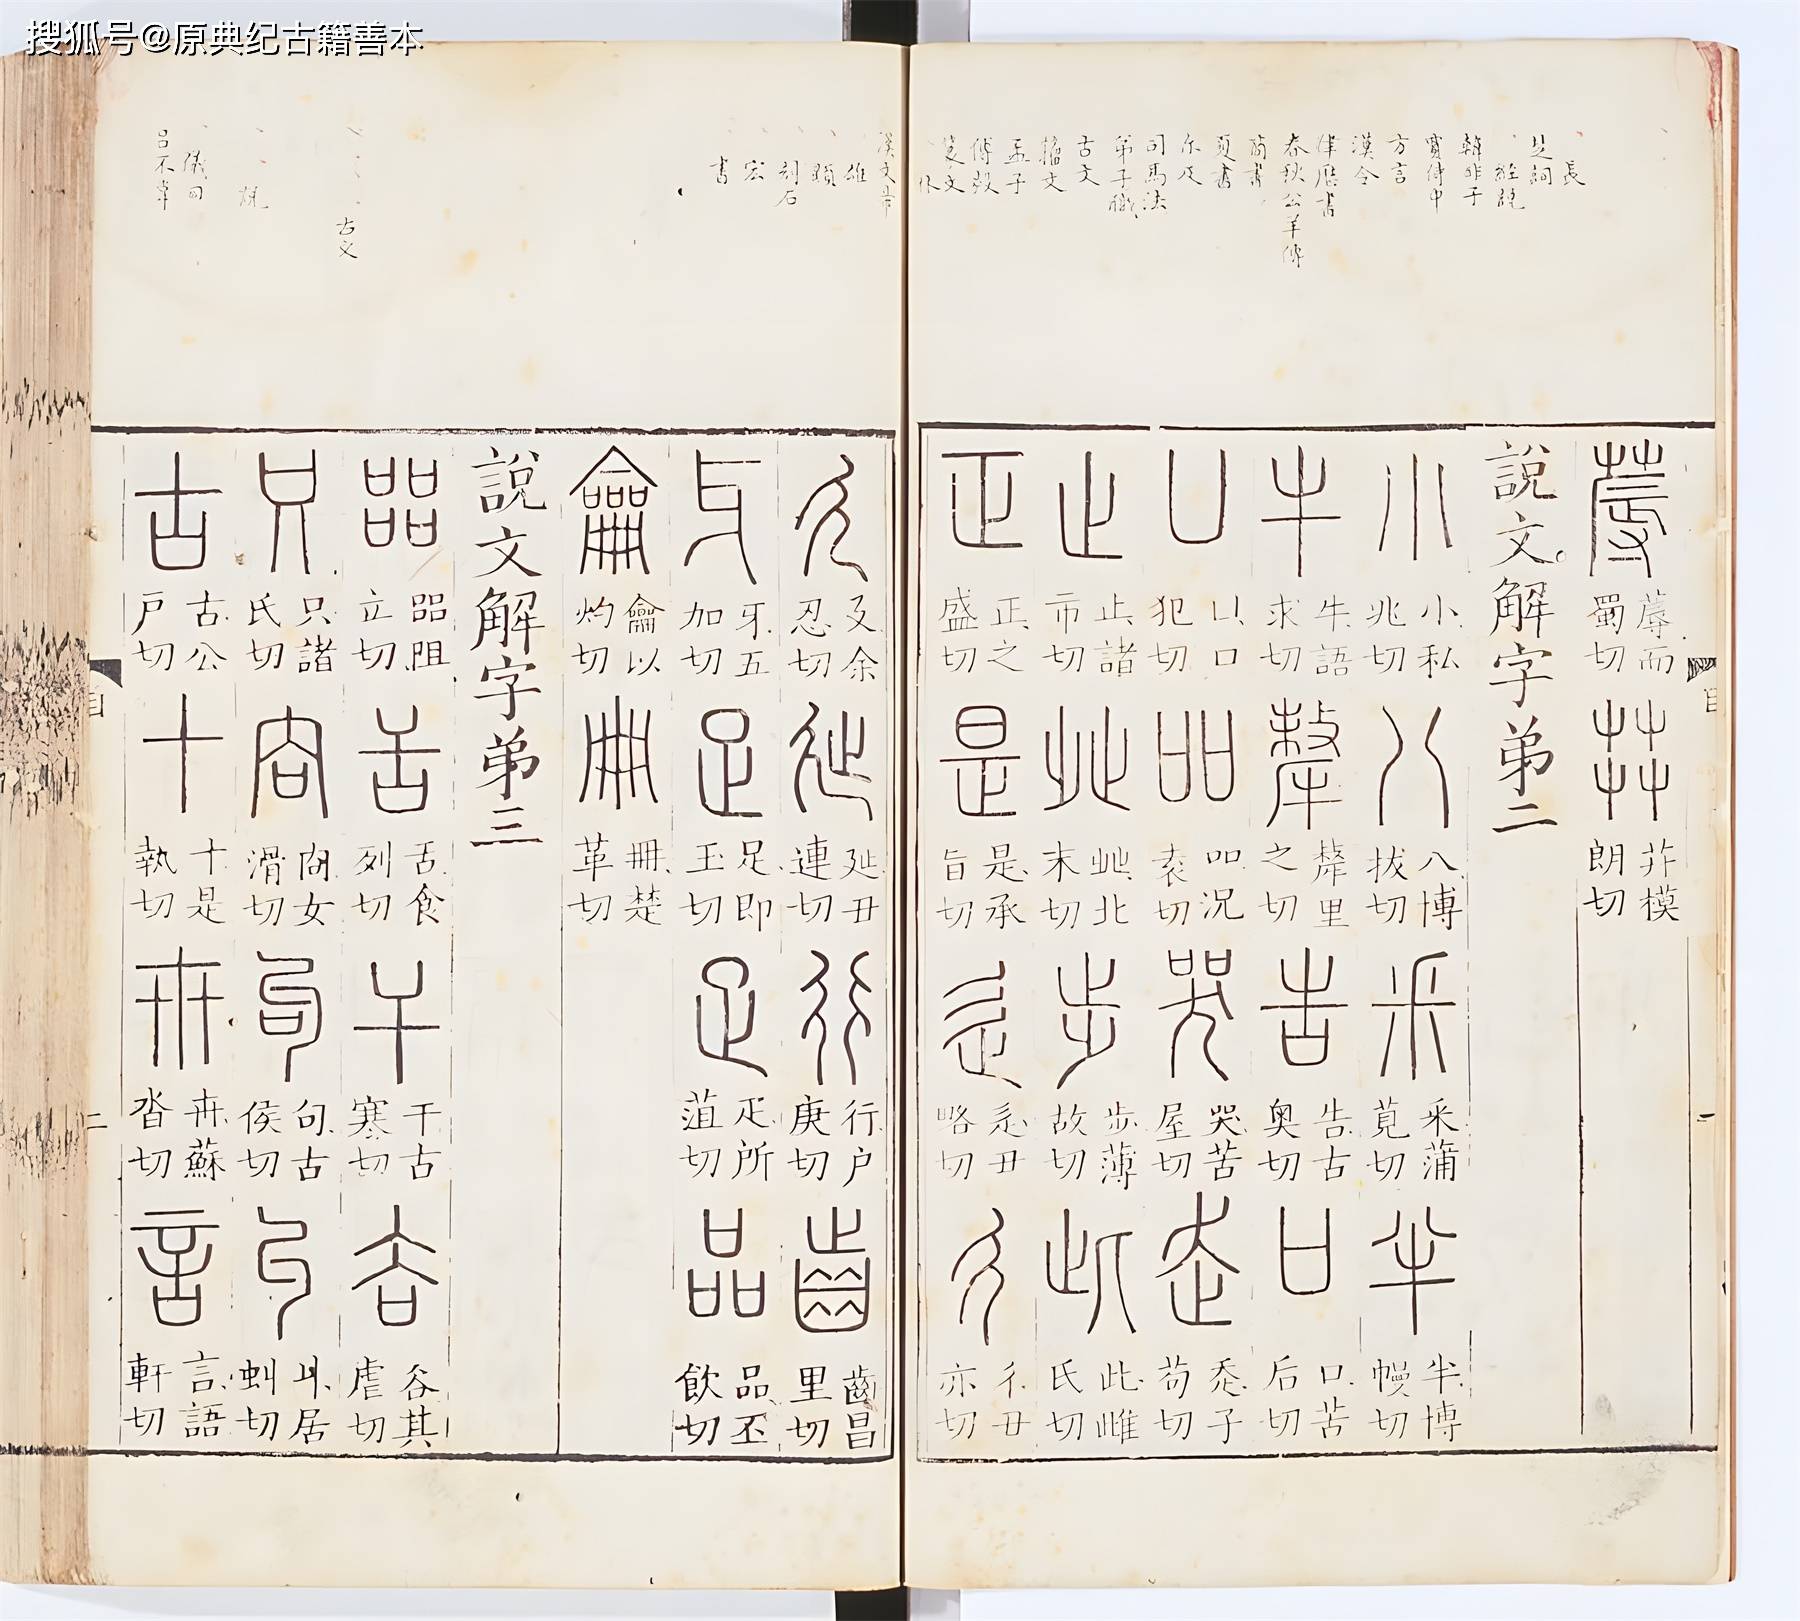 搜狐号@原典纪古籍善本
長
韓非子
賈侍中
方言
漢令
律歷書
春秋公羊傳
商書
夏書
尔疋
司馬法
弟子職
古文
籀文
孟子
傅毅
漢文帝
雄
刻石
宏
書
古文
呂不韋
蓐 蓐而蜀切 茻 茻模朗切
說文解字弟二
小 小私兆切 八 八博拔切 釆 釆蒲莧切 半 半博幔切
牛 牛語求切 犛 犛里之切 告 告古奧切 口 口苦后切
凵 凵口犯切 吅 吅況袁切 哭 哭苦屋切 走 𧺆子苟切
止 止諸市切 癶 癶北末切 步 步薄故切 此 此雌氏切
正 正之盛切 是 是承旨切 辵 辵丑略切 彳 彳丑亦切
廴 廴余忍切 㢟 㢟丑連切 行 行户庚切 齒 齒昌里切
牙 牙五加切 足 足即玉切 疋 疋所菹切 品 品丕飲切
龠 龠以灼切 冊 冊楚革切
說文解字弟三
㗊 㗊阻立切 舌 舌食列切 干 干古寒切 𧮫 𧮫其虐切
只 只諸氏切 㕯 㕯女滑切 句 句古侯切 丩 丩居虯切
古 古公戶切 十 十是執切 卅 卅蘇沓切 言 言語軒切
目
二
目
二